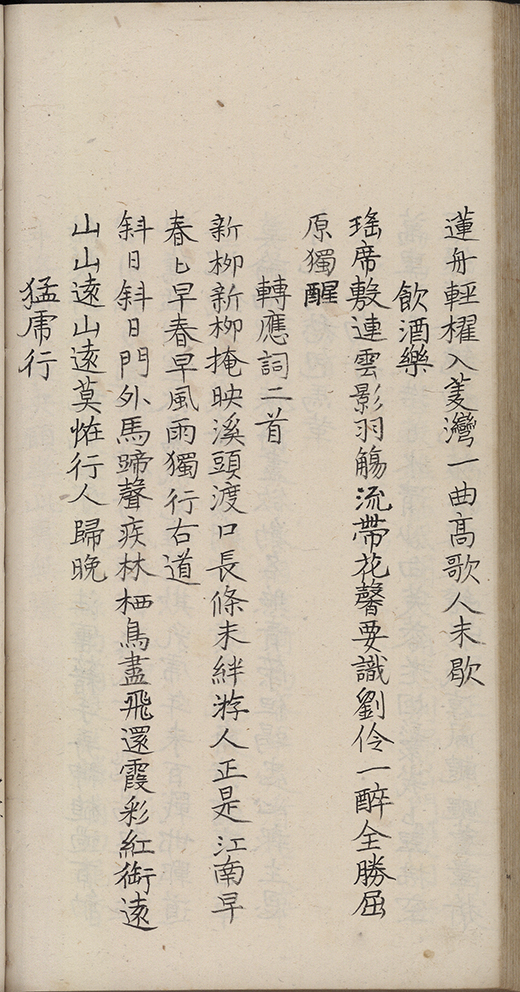 蓮舟輕櫂入菱灣一曲高歌人未歇
飲酒樂
瑤席敷連雲影羽觴流帶花馨要識劉伶一醉全勝屈
原獨醒
轉應詞二首
新柳新柳掩映溪頭渡口長條未絆游人正是江南早
春〻早春早風雨獨行右道
斜日斜日門外馬蹄聲疾林栖鳥盡飛還霞彩紅銜遠
山山遠山遠莫恠行人歸晚
猛虎行